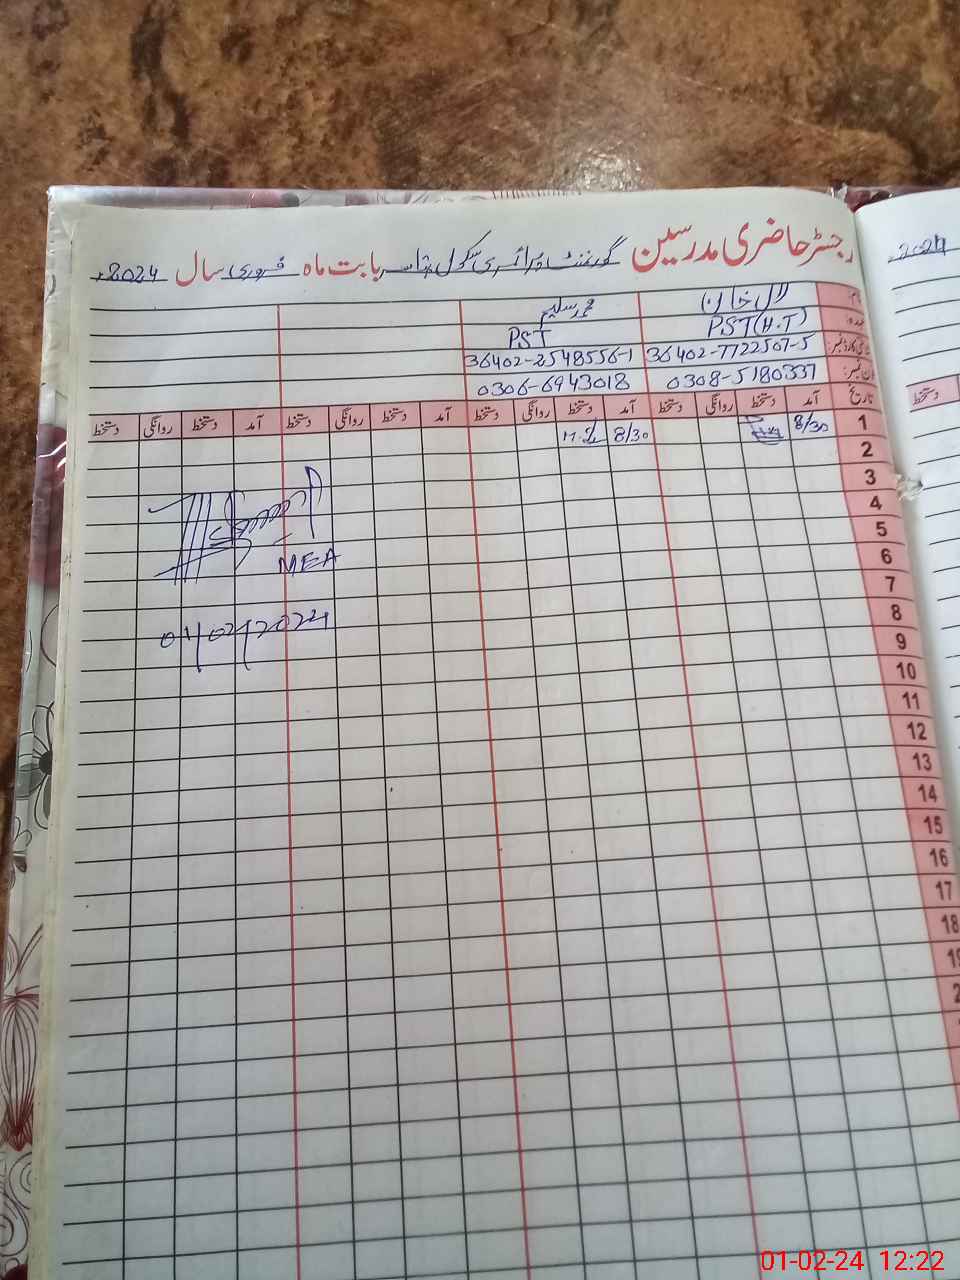 رجسٹر حاضری مدرسین گورنمنٹ پرائمری سکول بابت ماہ فروری سال 2024ء
2024
نام: لال خان محمد سلیم
عہدہ: PST(H.T) PST
شناختی کارڈ نمبر: 36402-7722507-5 36402-2548556-1
فون نمبر: 0308-5180337 0306-6943018
تاریخ آمد دستخط روانگی دستخط آمد دستخط روانگی دستخط آمد دستخط روانگی دستخط آمد دستخط روانگی دستخط
دستخط
1 8/30 8/30
2
3
4
5
6
MEA
7
8
01/02/2024
9
10
11
12
13
14
15
16
17
18
01-02-24 12:22